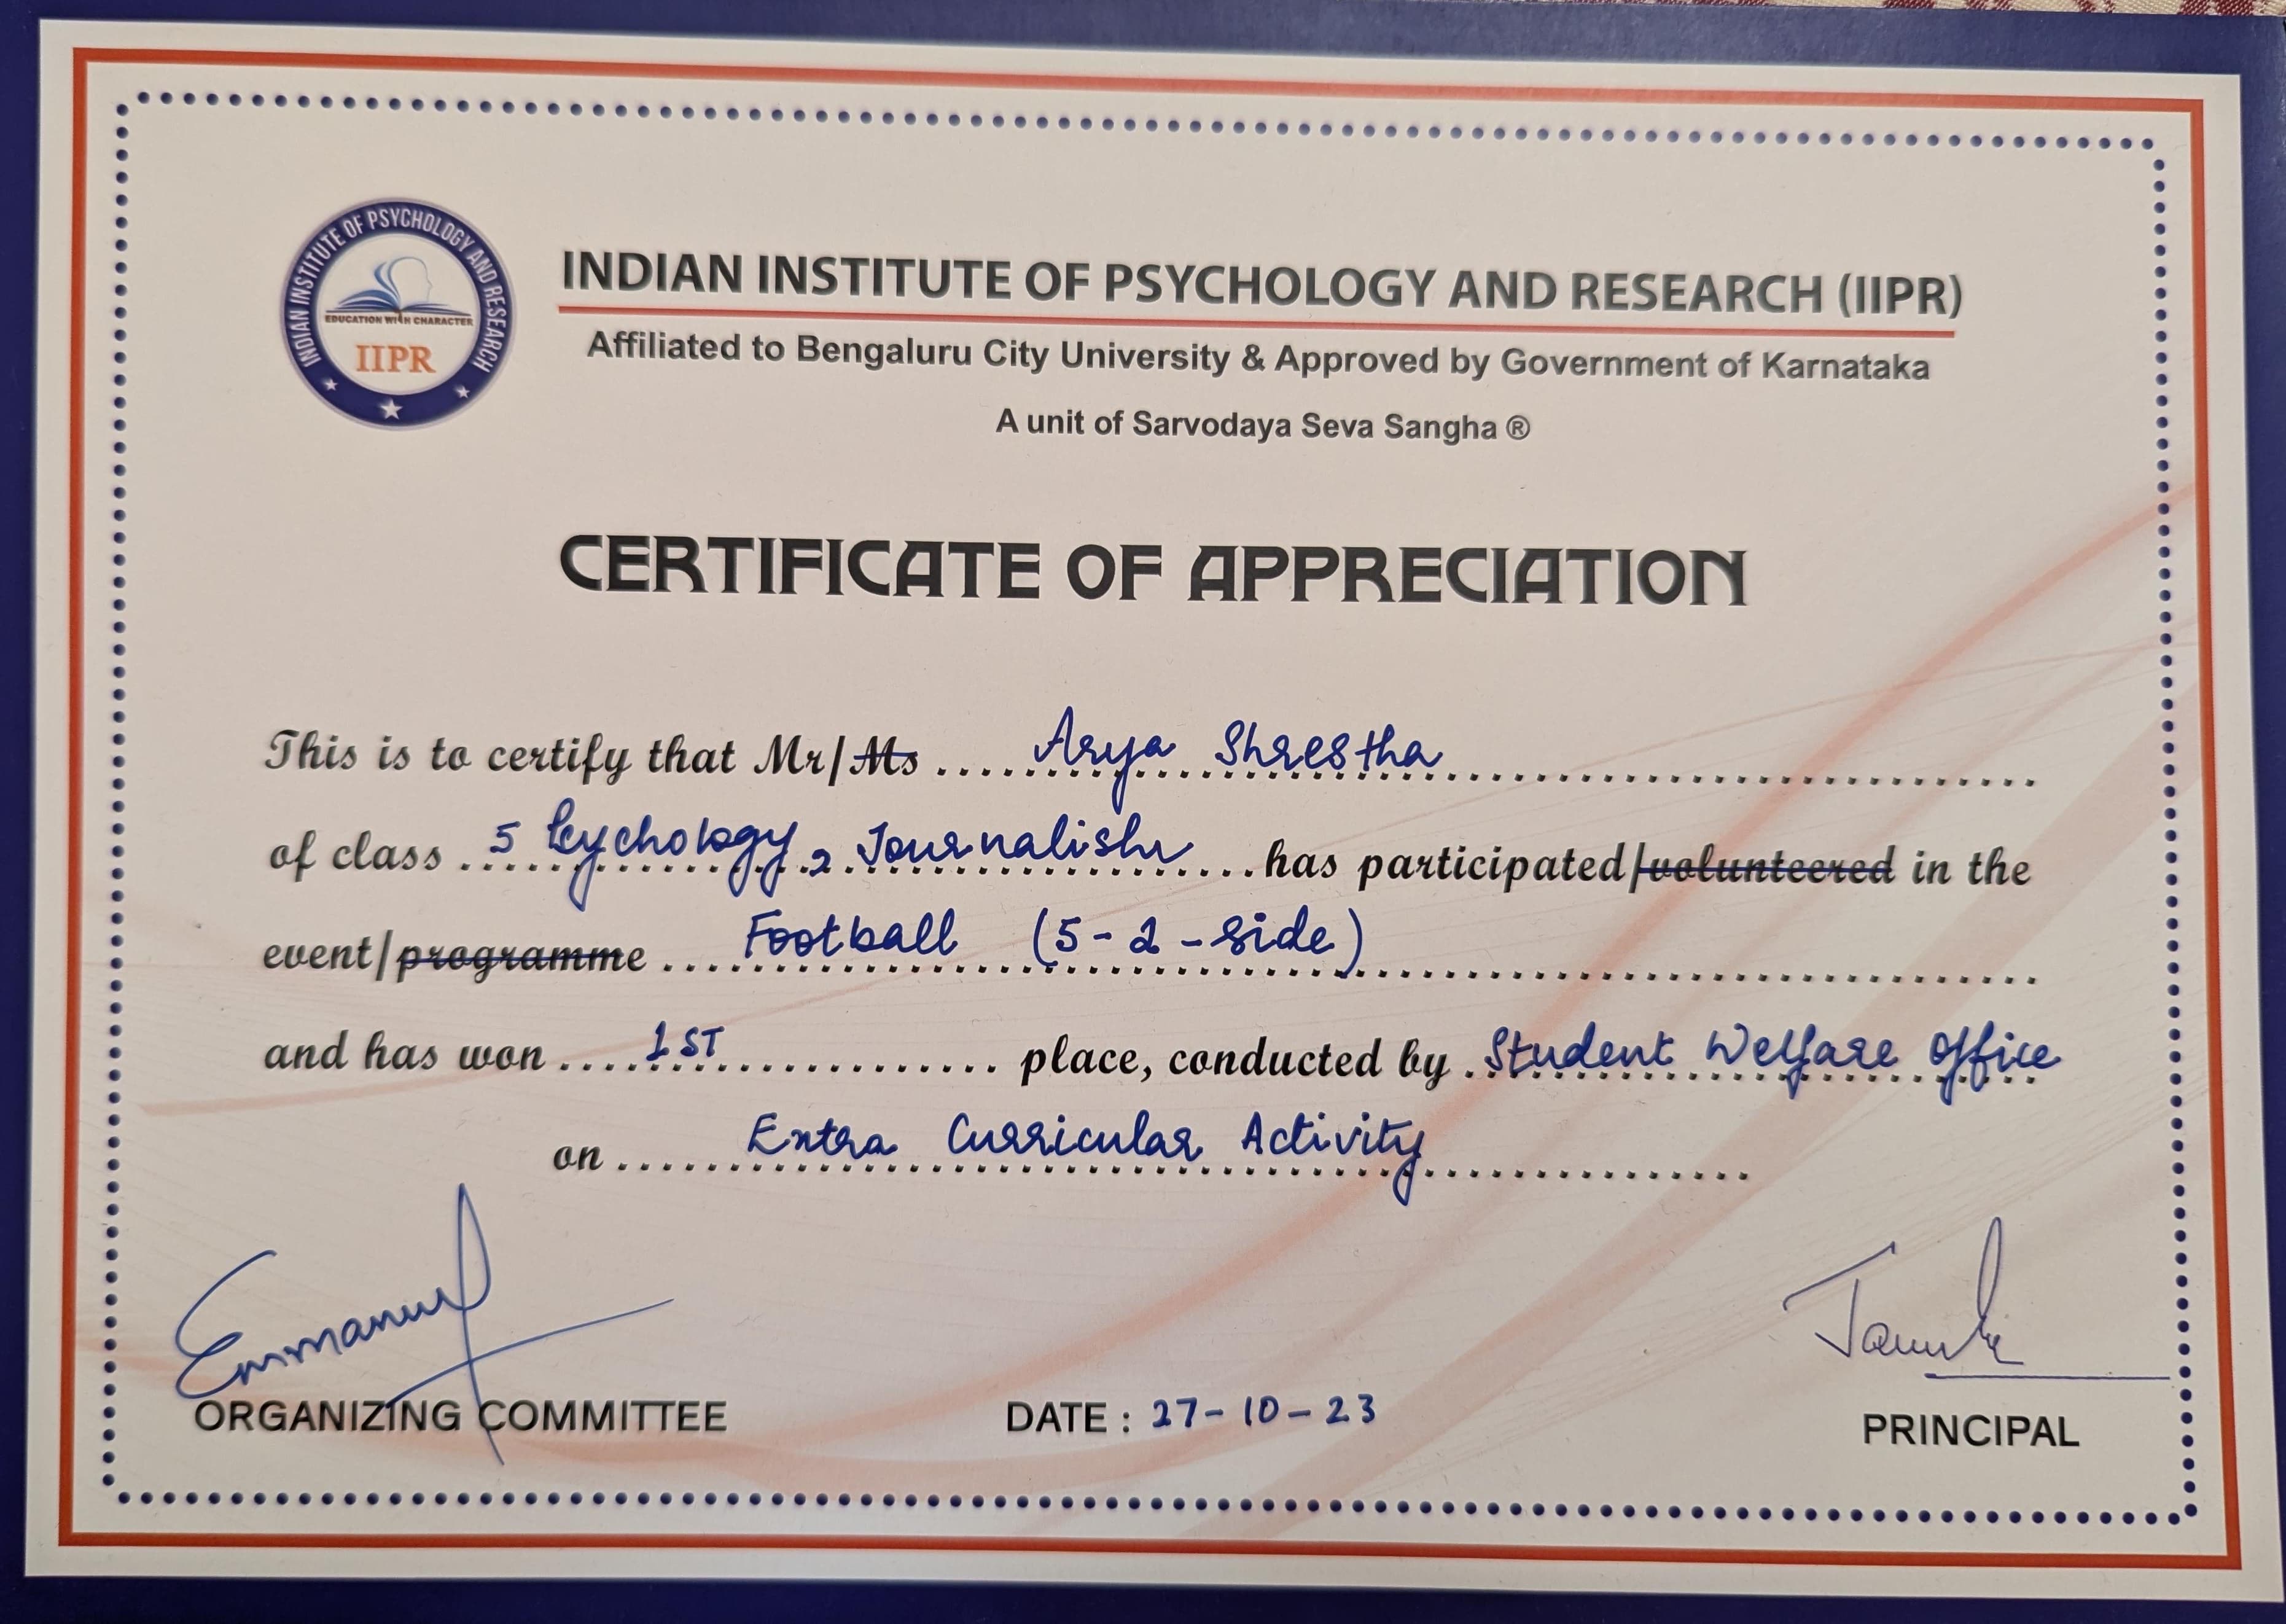 INDIAN INSTITUTE OF PSYCHOLOGY AND RESEARCH
EDUCATION WITH CHARACTER
IIPR
INDIAN INSTITUTE OF PSYCHOLOGY AND RESEARCH (IIPR)
Affiliated to Bengaluru City University & Approved by Government of Karnataka
A unit of Sarvodaya Seva Sangha ®
CERTIFICATE OF APPRECIATION
This is to certify that Mr/Ms Arya Shrestha
of class 5 Psychology, Journalism has participated/volunteered in the
event/programme Football (5-a-side)
and has won 1ST place, conducted by Student Welfare Office
on Extra Curricular Activity
Emmanuel
ORGANIZING COMMITTEE DATE : 27-10-23 PRINCIPAL